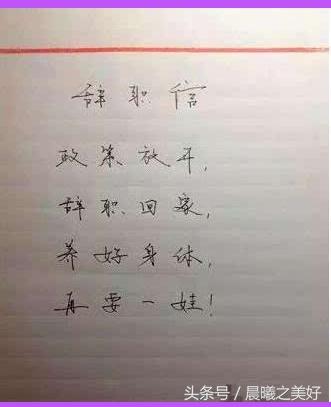 辞职信
政策放开,
辞职回家,
养好身体,
再要一娃!
头条号/晨曦之美好